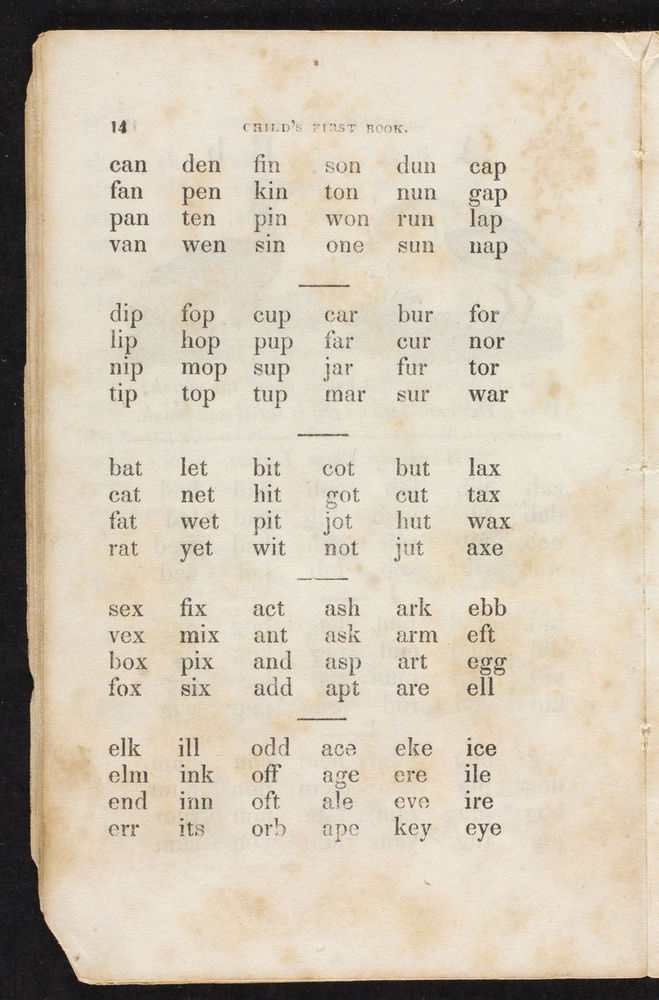 14 CHILD'S FIRST BOOK.
can den fin son dun cap
fan pen kin ton nun gap
pan ten pin won run lap
van wen sin one sun nap
dip fop cup car bur for
lip hop pup far cur nor
nip mop sup jar fur tor
tip top tup mar sur war
bat let bit cot but lax
cat net hit got cut tax
fat wet pit jot hut wax
rat yet wit not jut axe
sex fix act ash ark ebb
vex mix ant ask arm eft
box pix and asp art egg
fox six add apt are ell
elk ill odd ace eke ice
elm ink off age ere ile
end inn oft ale eve ire
err its orb ape key eye